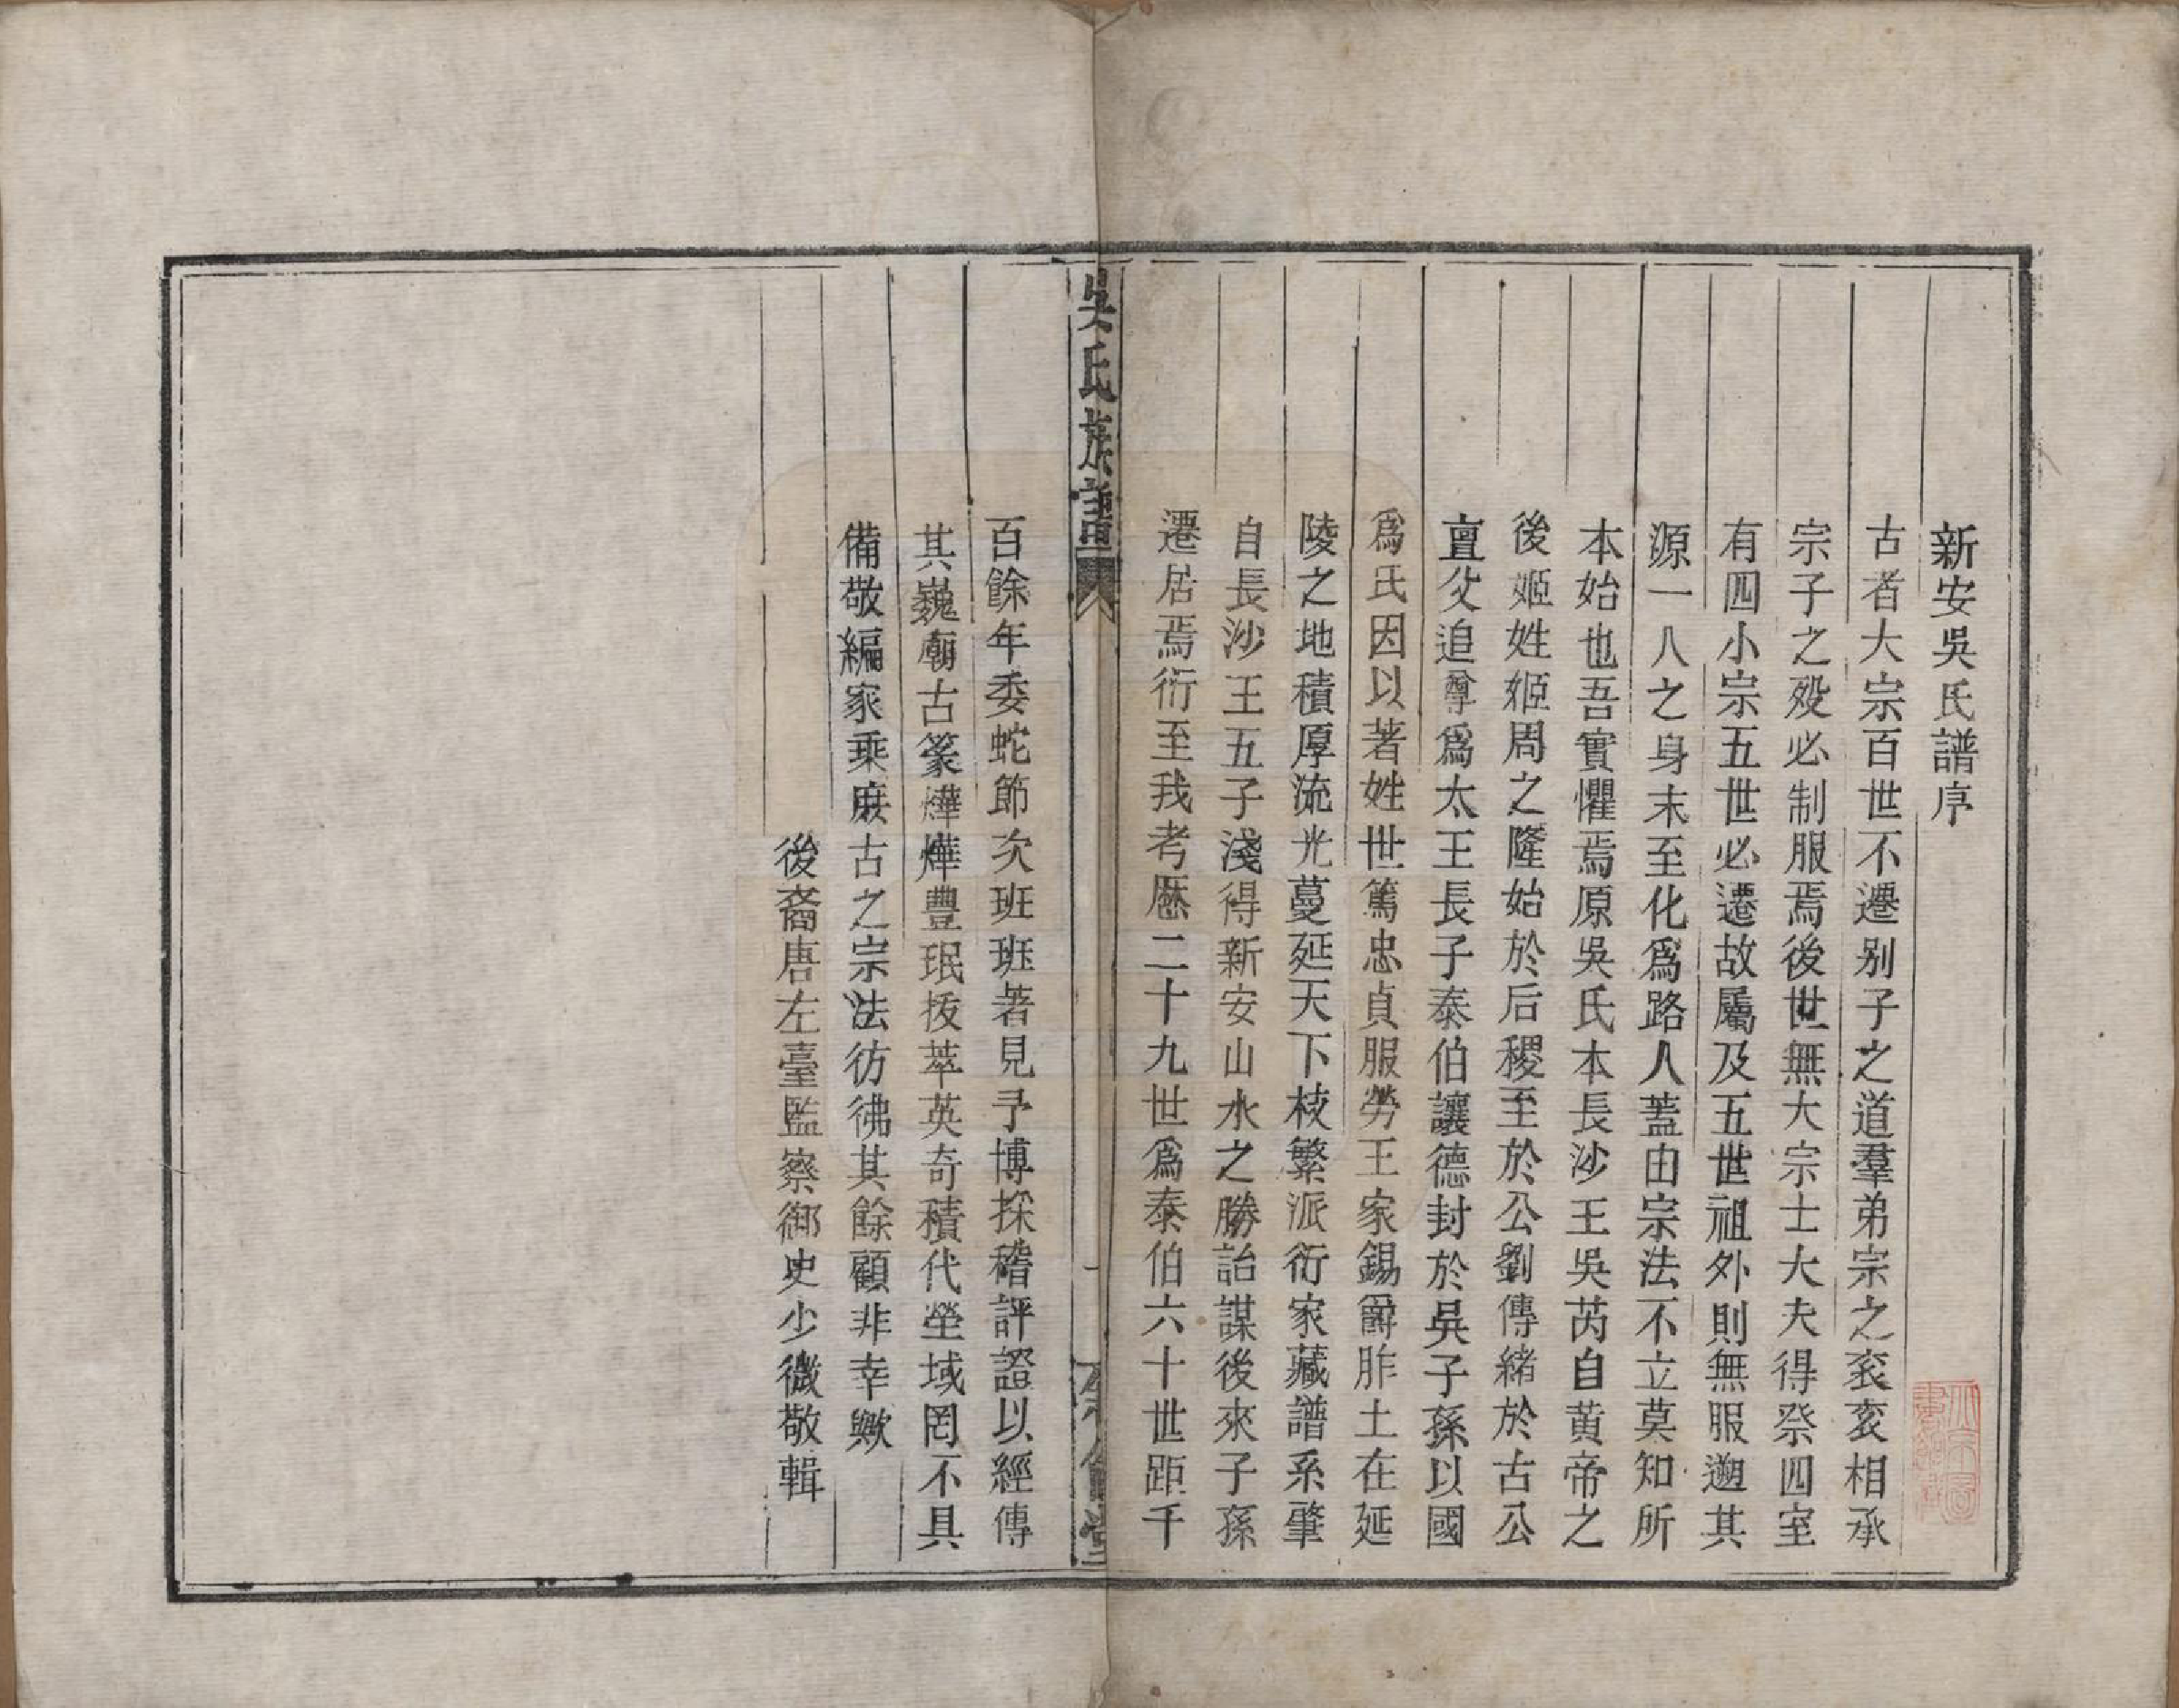 新安吳氏譜序
古者大宗百世不遷别子之道羣弟宗之袞袞相承
宗子之殁必制服焉後世無大宗士大夫得祭四室
有四小宗五世必遷故屬及五世祖外則無服遡其
源一人之身末至化爲路人蓋由宗法不立莫知所
本始也吾實懼焉原吳氏本長沙王吳芮自黄帝之
後姬姓姬周之隆始於后稷至於公劉傳緒於古公
亶父追尊爲太王長子泰伯讓德封於吳子孫以國
爲氏因以著姓世篤忠貞服勞王家錫爵胙土在延
陵之地積厚流光蔓延天下枝繁派衍家藏譜系肇
自長沙王五子淺得新安山水之勝詒謀後來子孫
遷居焉衍至我考厯二十九世爲泰伯六十世距千
吳氏族譜
一
堂
百餘年委蛇節次班班著見予博採稽評證以經傳
其巍廟古篆燁燁豐珉拔萃英奇積代塋域罔不具
備敬編家乗庶古之宗法彷彿其餘顧非幸歟
後裔唐左臺監察御史少微敬輯